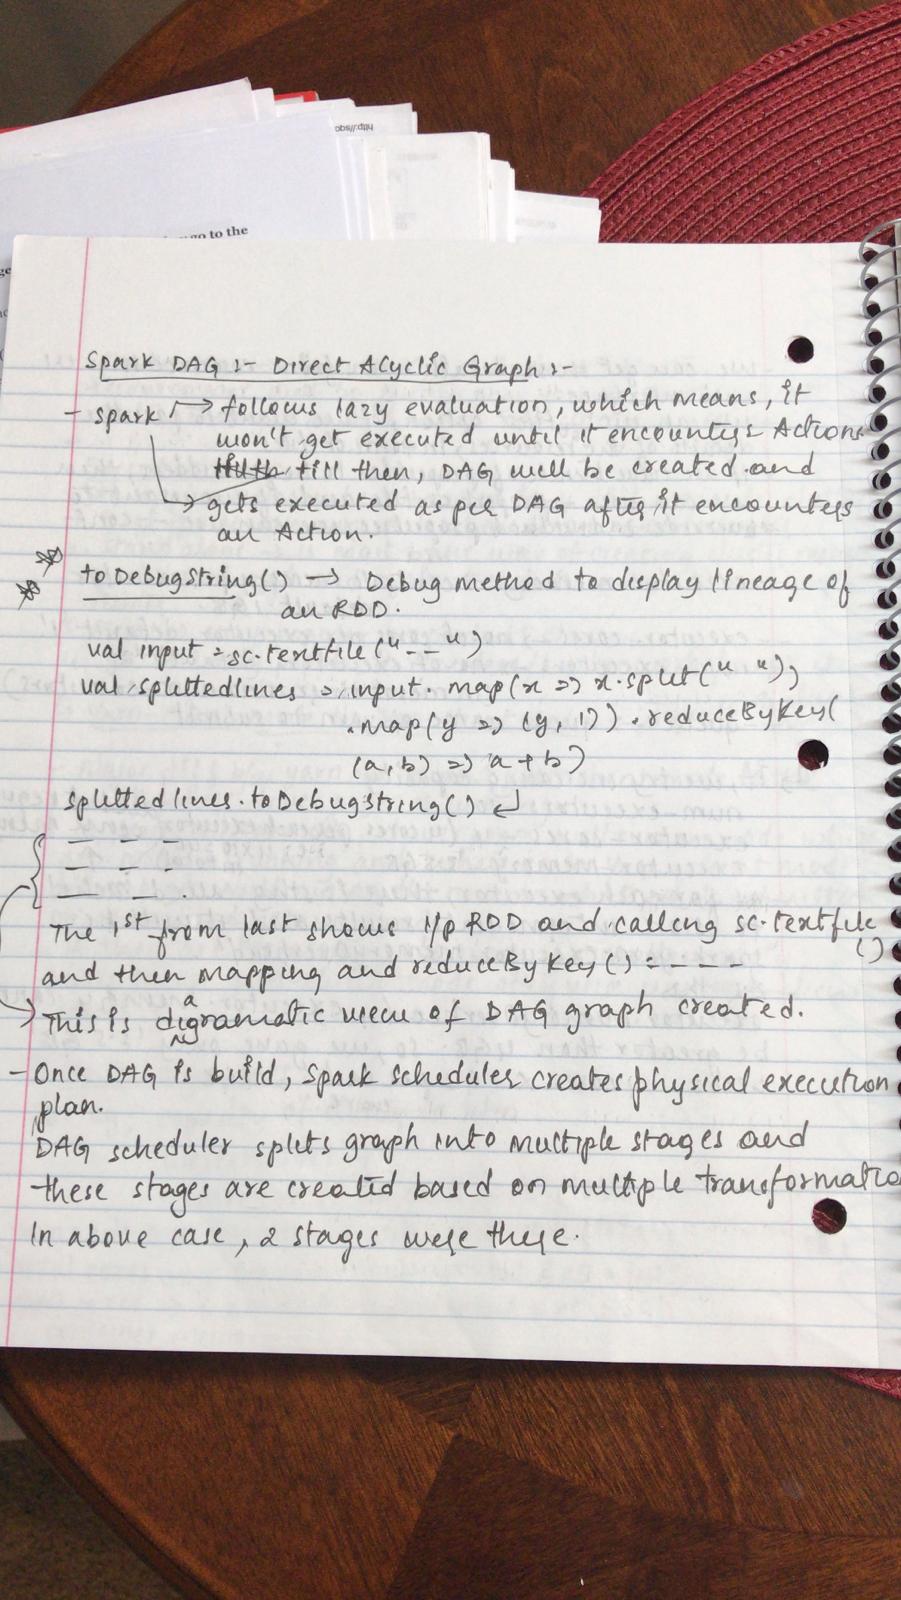 http://sqo
go to the
Spark DAG :- Direct Acyclic Graph :-
- Spark → follows lazy evaluation, which means, it
won't get executed until it encounters Actions
till then, DAG will be created and
→ gets executed as per DAG after it encounters
an Action.
toDebugString() → Debug method to display lineage of
an RDD.
val input = sc.textfile("--")
val splittedlines = input.map(x => x.split(" "))
.map(y => (y, 1)).reduceByKey(
(a,b) => a+b)
splittedlines.toDebugString() ↵
The 1st from last shows i/p RDD and calling sc.textfile
()
and then mapping and reduceByKey() :- - - -
→ This is diagramatic view of DAG graph created.
- Once DAG is build, Spark scheduler creates physical execution
plan.
DAG scheduler splits graph into multiple stages and
these stages are created based on multiple transformatio
In above case, 2 stages were there.